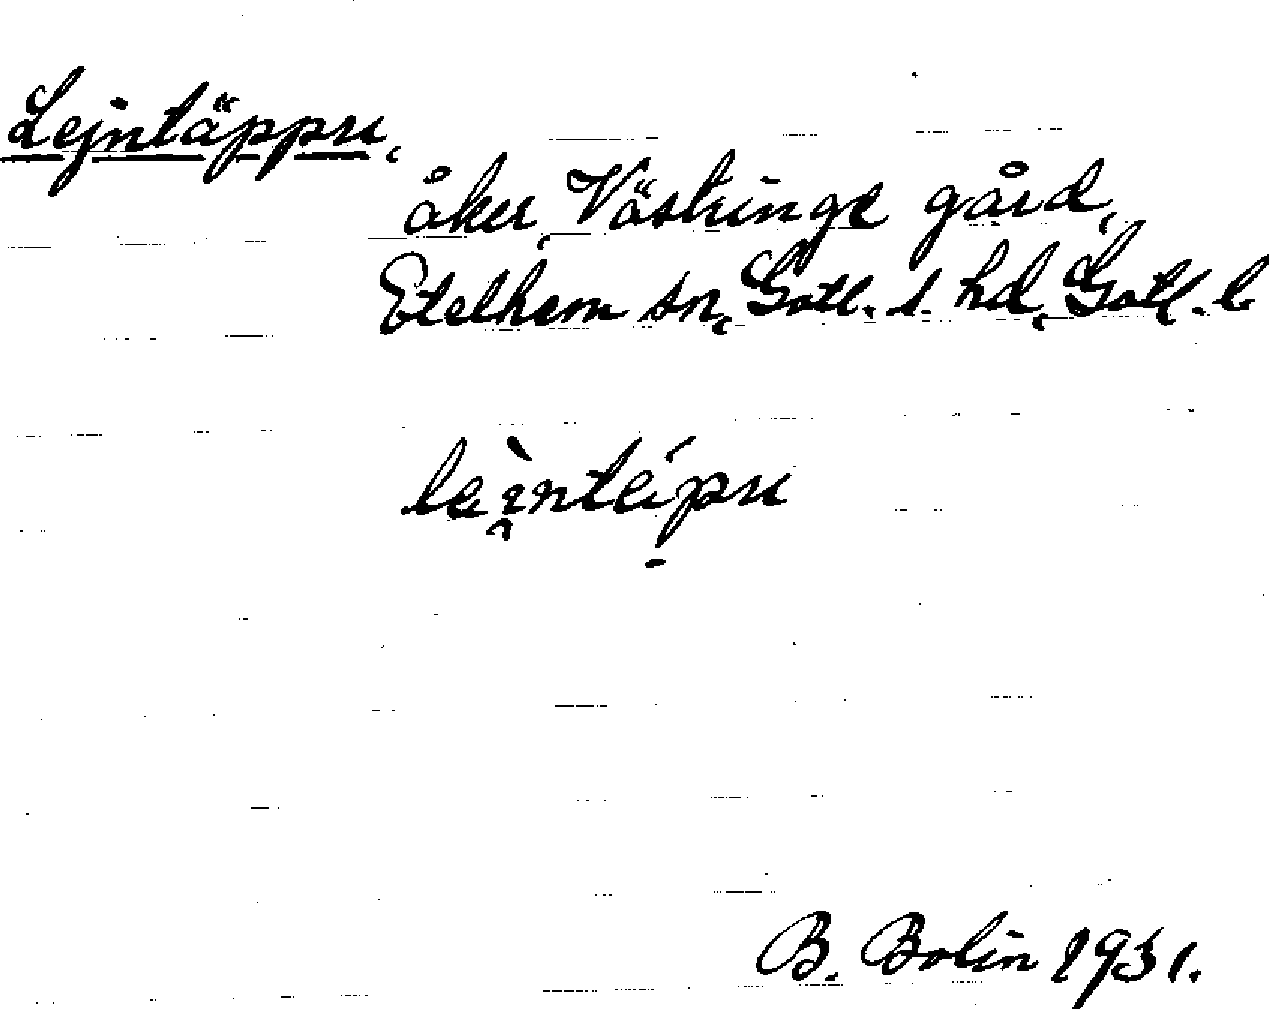 Lejntäppu,
åker, Västringe gård,
Etelhem sn, Gotl. s. hd, Gotl. l.
B. Bolin 1931.